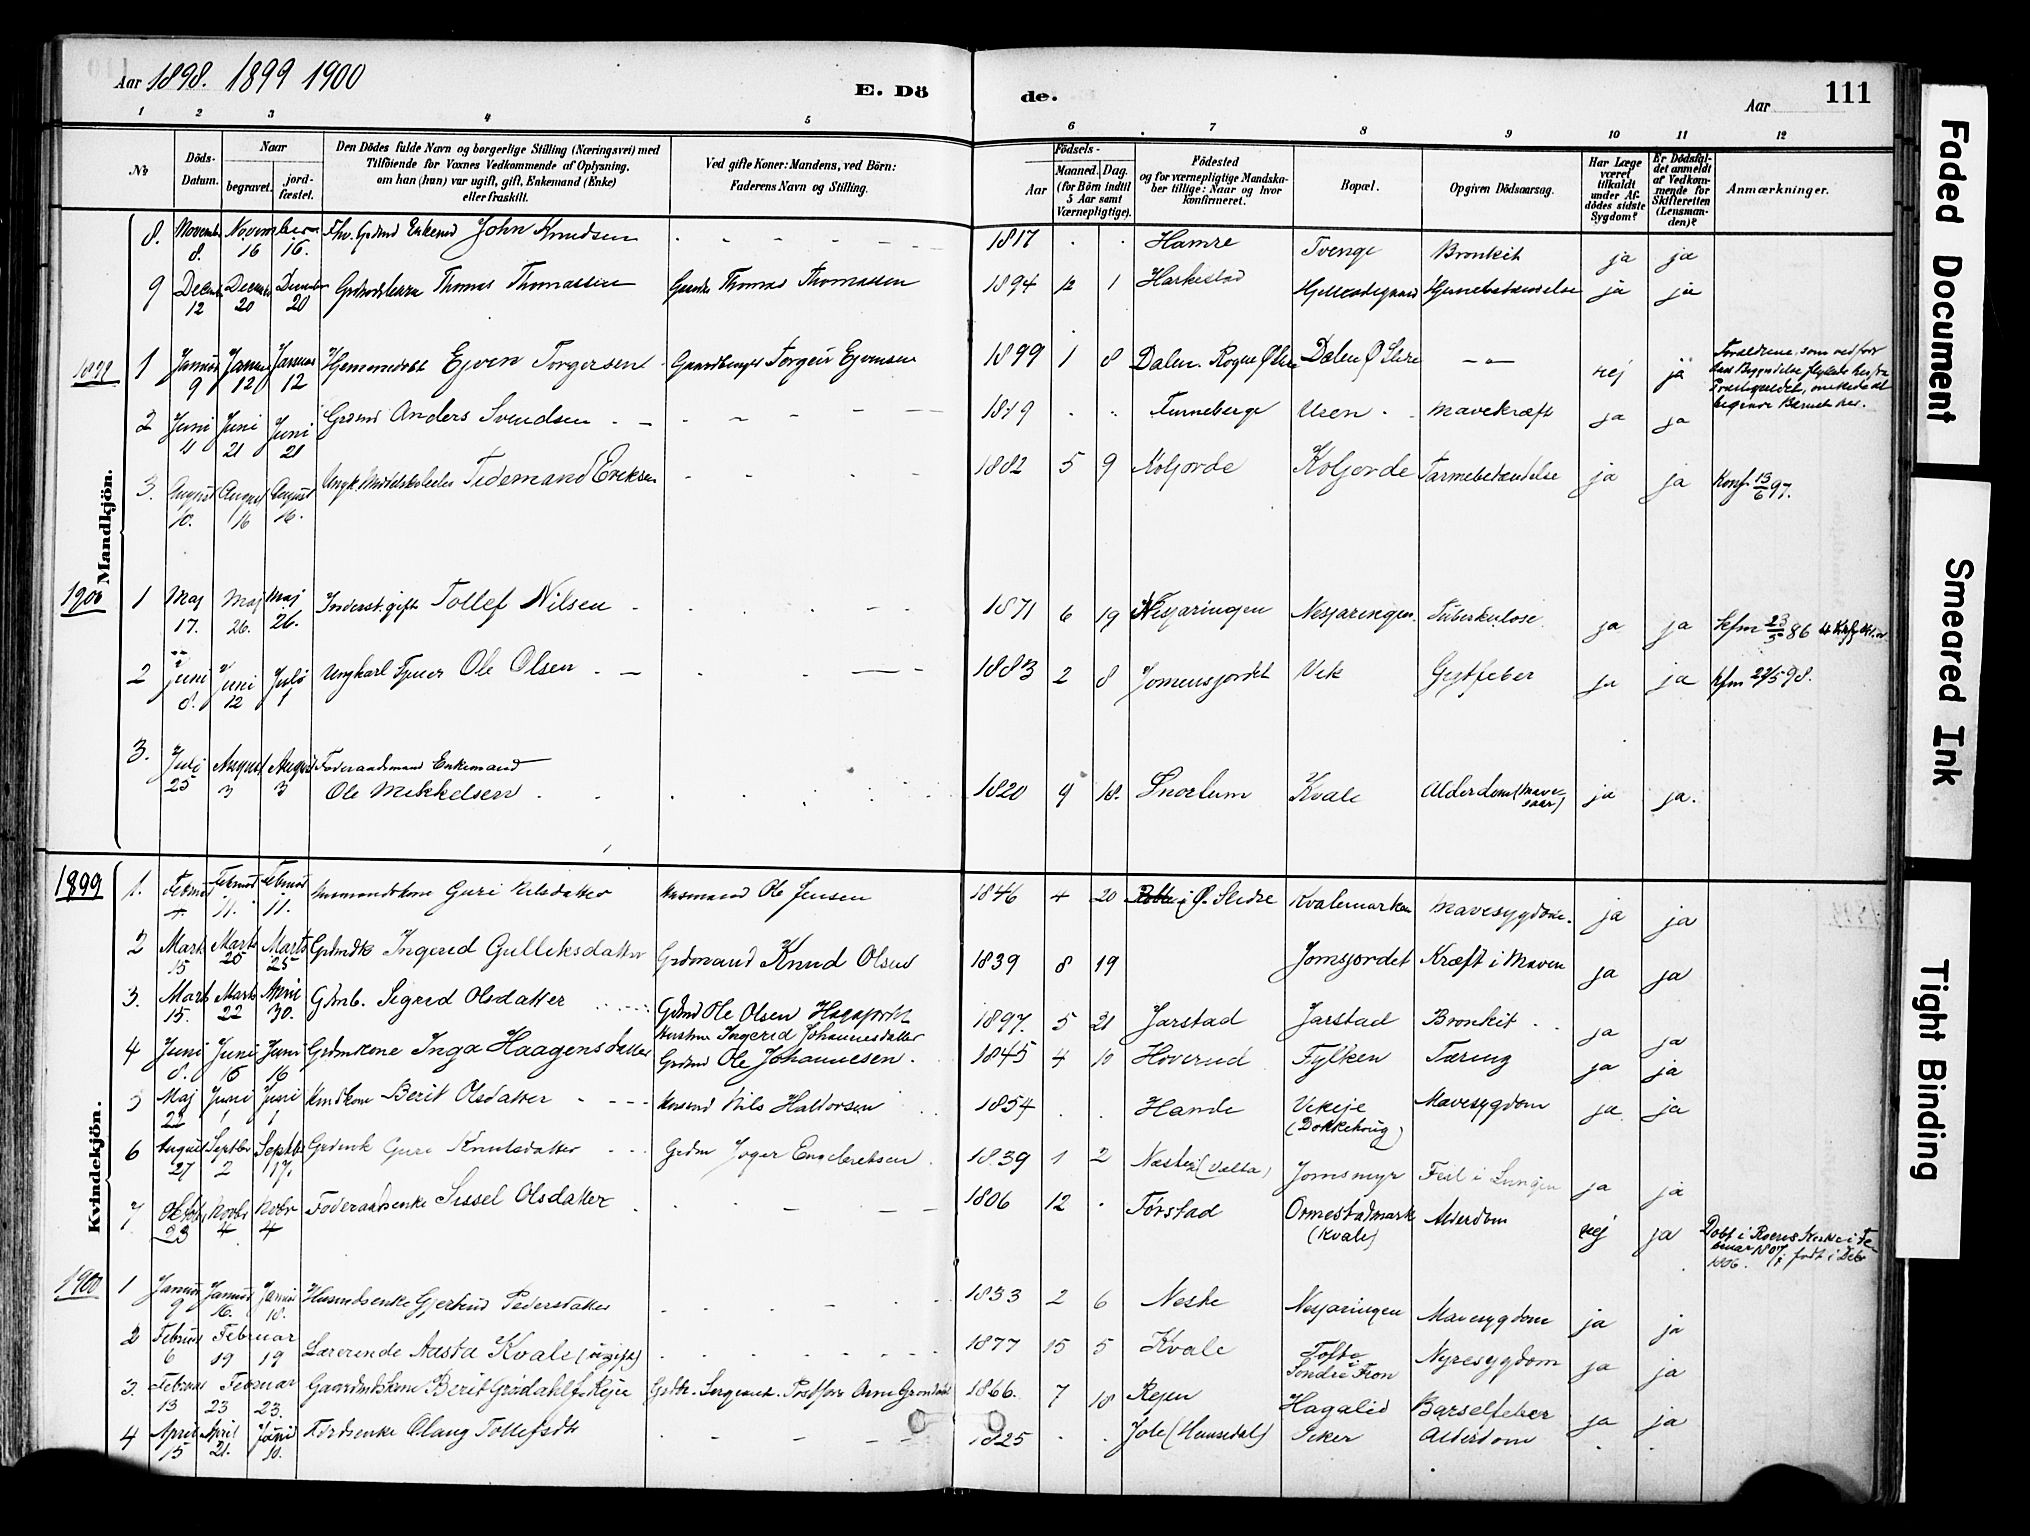 Aar 1898. 1899 1900
E. Dö
de.
Aar
111
1 2 3 4 5 6 7 8 9 10 11 12
No
Döds-Datum.
Naar
begravet.
jord-fæstet.
Den Dödes fulde Navn og borgerlige Stilling (Næringsvei) med
Tilföiende for Voxnes Vedkommende af Oplysning,
om han (hun) var ugift, gift, Enkemand (Enke)
eller fraskilt.
Ved gifte Koner: Mandens, ved Börn:
Faderens Navn og Stilling.
Födsels-
Aar
Maaned. Dag.
(for Börn indtil
5 Aar samt
Værnepligtige).
Födested
og for værnepligtige Mandska-
ber tillige: Naar og hvor
konfirmeret.
Bopæl.
Opgiven Dödsaarsag.
Har Læge
været
tilkaldt
under Af-
dödes sidste
Sygdom?
Er Dödsfal-
det anmeldt
af Vedkom-
mende for
Skifteretten
(Lensman-
den)?
Anmærkninger.
Mandkjön.
8. November 8. November 16 16. Fhv. Gdmd Enkemd John Knudsen 1817 Hamre Tvenge Bronkit ja ja
9 Decem 12 Decem 20 Decembr 20 Thomas Thomassen Thomas Thomassen 1894 12 1 Haskestad ja ja
1899
1 Januar 9 Januar 12 Januar 12 Ejven Torgersen Torgeir Ejvensen 1899 1 8 Dalen Rogne Ø Slire Dalen Ø Slire nej ja
2 Juni 11 Juni 21 Juni 21 Grdmd Anders Svendsen 1819 Turneberge Uren Mavekræft ja ja
3. August 10. August 16 August 16. Tidemand Eriksen 1882 5 9 Koljorde Koljorde Tarmebetændelse ja ja Konf 13/6 97.
1900
1 Maj 17. Maj 26. Maj 26. Inderst. gift Tollef Nilsen 1871 6 19 Nesjaringen Nesjaringen Tuberkulose. ja ja Kfm 23/5 86
2 Juni 8. Juni 12 Juli 1 Ungkarl Tjener Ole Olsen 1883 2 8 Jomensjordet Vik Gigtfeber ja ja Kfm 22/5 98.
3. Juli 25 August 3 August 3 Foderaadsmand Enkemand
Ole Mikkelsen 1820 9 18. Snortum Kvale Alderdom (Mavesaar) ja ja.
Kvindekjön.
1899
1. Februar 4 Februar 11. Februar 11. Husmandskone Guri Nilsdatter Husmand Ole Jensen 1846 4 20 Ø. Slidre Kvalemarken Mavesygdom. ja ja
2 Marts 15 Marts 25 Marts 25 Ingerid Gulliksdatter Grdmand Knud Olsen 1839 8 19 Jomsjordet Kræft i Maven ja ja
3. Marts 15. Marts 22 April 30. Gdmb. Sigrid Olsdatter Grdmd Ole Olsen
Hustru Ingerid Johannesdatter 1897. 5 21 Jarstad Jarstad Bronkit ja ja
4 Juni 8. Juni 15 Juni 16 Grdmkone Inga Haagensdatter Grdmd Ole Johannesen. 1845 4 10 Hoverud Fylken Tæring ja ja
5 Maj 22 Juni 1 Juni 1 Berit Olsdatter Husmd Nils Haltorsen 1854 Hande Vekeje
(Dokkehaug) Mavesygdom ja ja
6 August 27 Septbr 2 Septbr 17. Guri Knutsdatter Grdm Joger Engebretsen 1839 1 2 Neste (Valta) Jomsmyr Feil i Lungen ja ja
7 Oktob 23 Novbr 4 Novbr 4 Foderaadsenke Sissel Olsdatter 1806 12 Torstad Ormestadmark
(Kvale) Alderdom nej ja
1900
1 Januar 9 Januar 16. Januar 18. Husmdsenke Gjertrud Pedersdatter 1833 2 6 Neste Nesjaringen Mavesygdom ja ja
2 Februar 6 Februar 19 19 Lærerinde Aasta Kvale (ugift) 1877 15 5 Kvale Tofte i
Søndre Fron Nyresygdom ja ja
3. Februar 13 Februar 23 23. Gaardmdskone Berit Grøndahl f. Rejen Sergeant Arne Grøndahl 1866. 7 18 Rejen Hagalid Barselfeber ja ja
4 April 15 April 21. Juni 10. Olaug Tollefsdtr 1825 Jote (Hemsedal) Seker Alderdom
Faded Document
Smeared Ink
Tight Binding